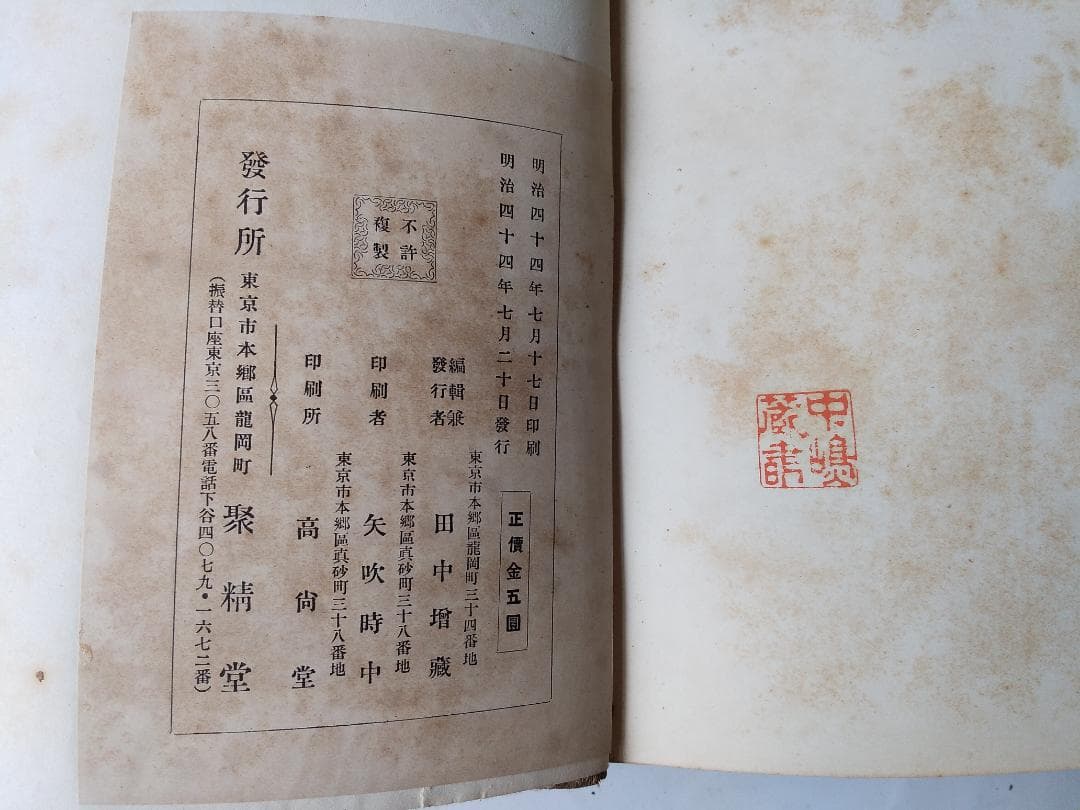 明治四十四年七月十七日印刷
明治四十四年七月二十日發行
正價金五圓
不許
複製
編輯兼
發行者
東京市本鄉區龍岡町三十四番地
田中增藏
印刷者
東京市本鄉區眞砂町三十八番地
矢吹時中
印刷所
東京市本鄉區眞砂町三十八番地
高尙堂
發行所
東京市本鄉區龍岡町
聚精堂
(振替口座東京三〇五八番電話下谷四〇七九・一六七二番)
中嶋
蔵書